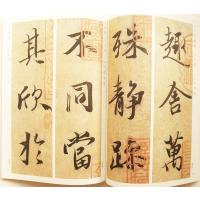 趣舍萬
殊静躁
不同當
其欣於